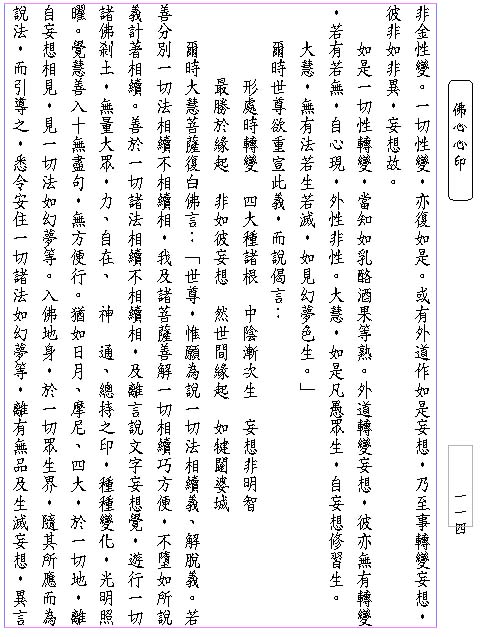 佛心心印
一一四
非金性變。一切性變，亦復如是。或有外道作如是妄想，乃至事轉變妄想，
彼非如非異，妄想故。
如是一切性轉變，當知如乳酪酒果等熟。外道轉變妄想，彼亦無有轉變
，若有若無，自心現，外性非性。大慧，如是凡愚眾生，自妄想修習生。
大慧，無有法若生若滅，如見幻夢色生。」
爾時世尊欲重宣此義，而說偈言：
形處時轉變　四大種諸根　中陰漸次生　妄想非明智
最勝於緣起　非如彼妄想　然世間緣起　如犍闥婆城
爾時大慧菩薩復白佛言：「世尊，惟願為說一切法相續義、解脫義。若
善分別一切法相續不相續相，我及諸菩薩善解一切相續巧方便，不墮如所說
義計著相續。善於一切諸法相續不相續相，及離言說文字妄想覺，遊行一切
諸佛剎土，無量大眾，力、自在、　神　通、總持之印，種種變化，光明照
曜。覺慧善入十無盡句，無方便行。猶如日月、摩尼、四大，於一切地，離
自妄想相見，見一切法如幻夢等。入佛地身，於一切眾生界，隨其所應而為
說法，而引導之，悉令安住一切諸法如幻夢等，離有無品及生滅妄想，異言